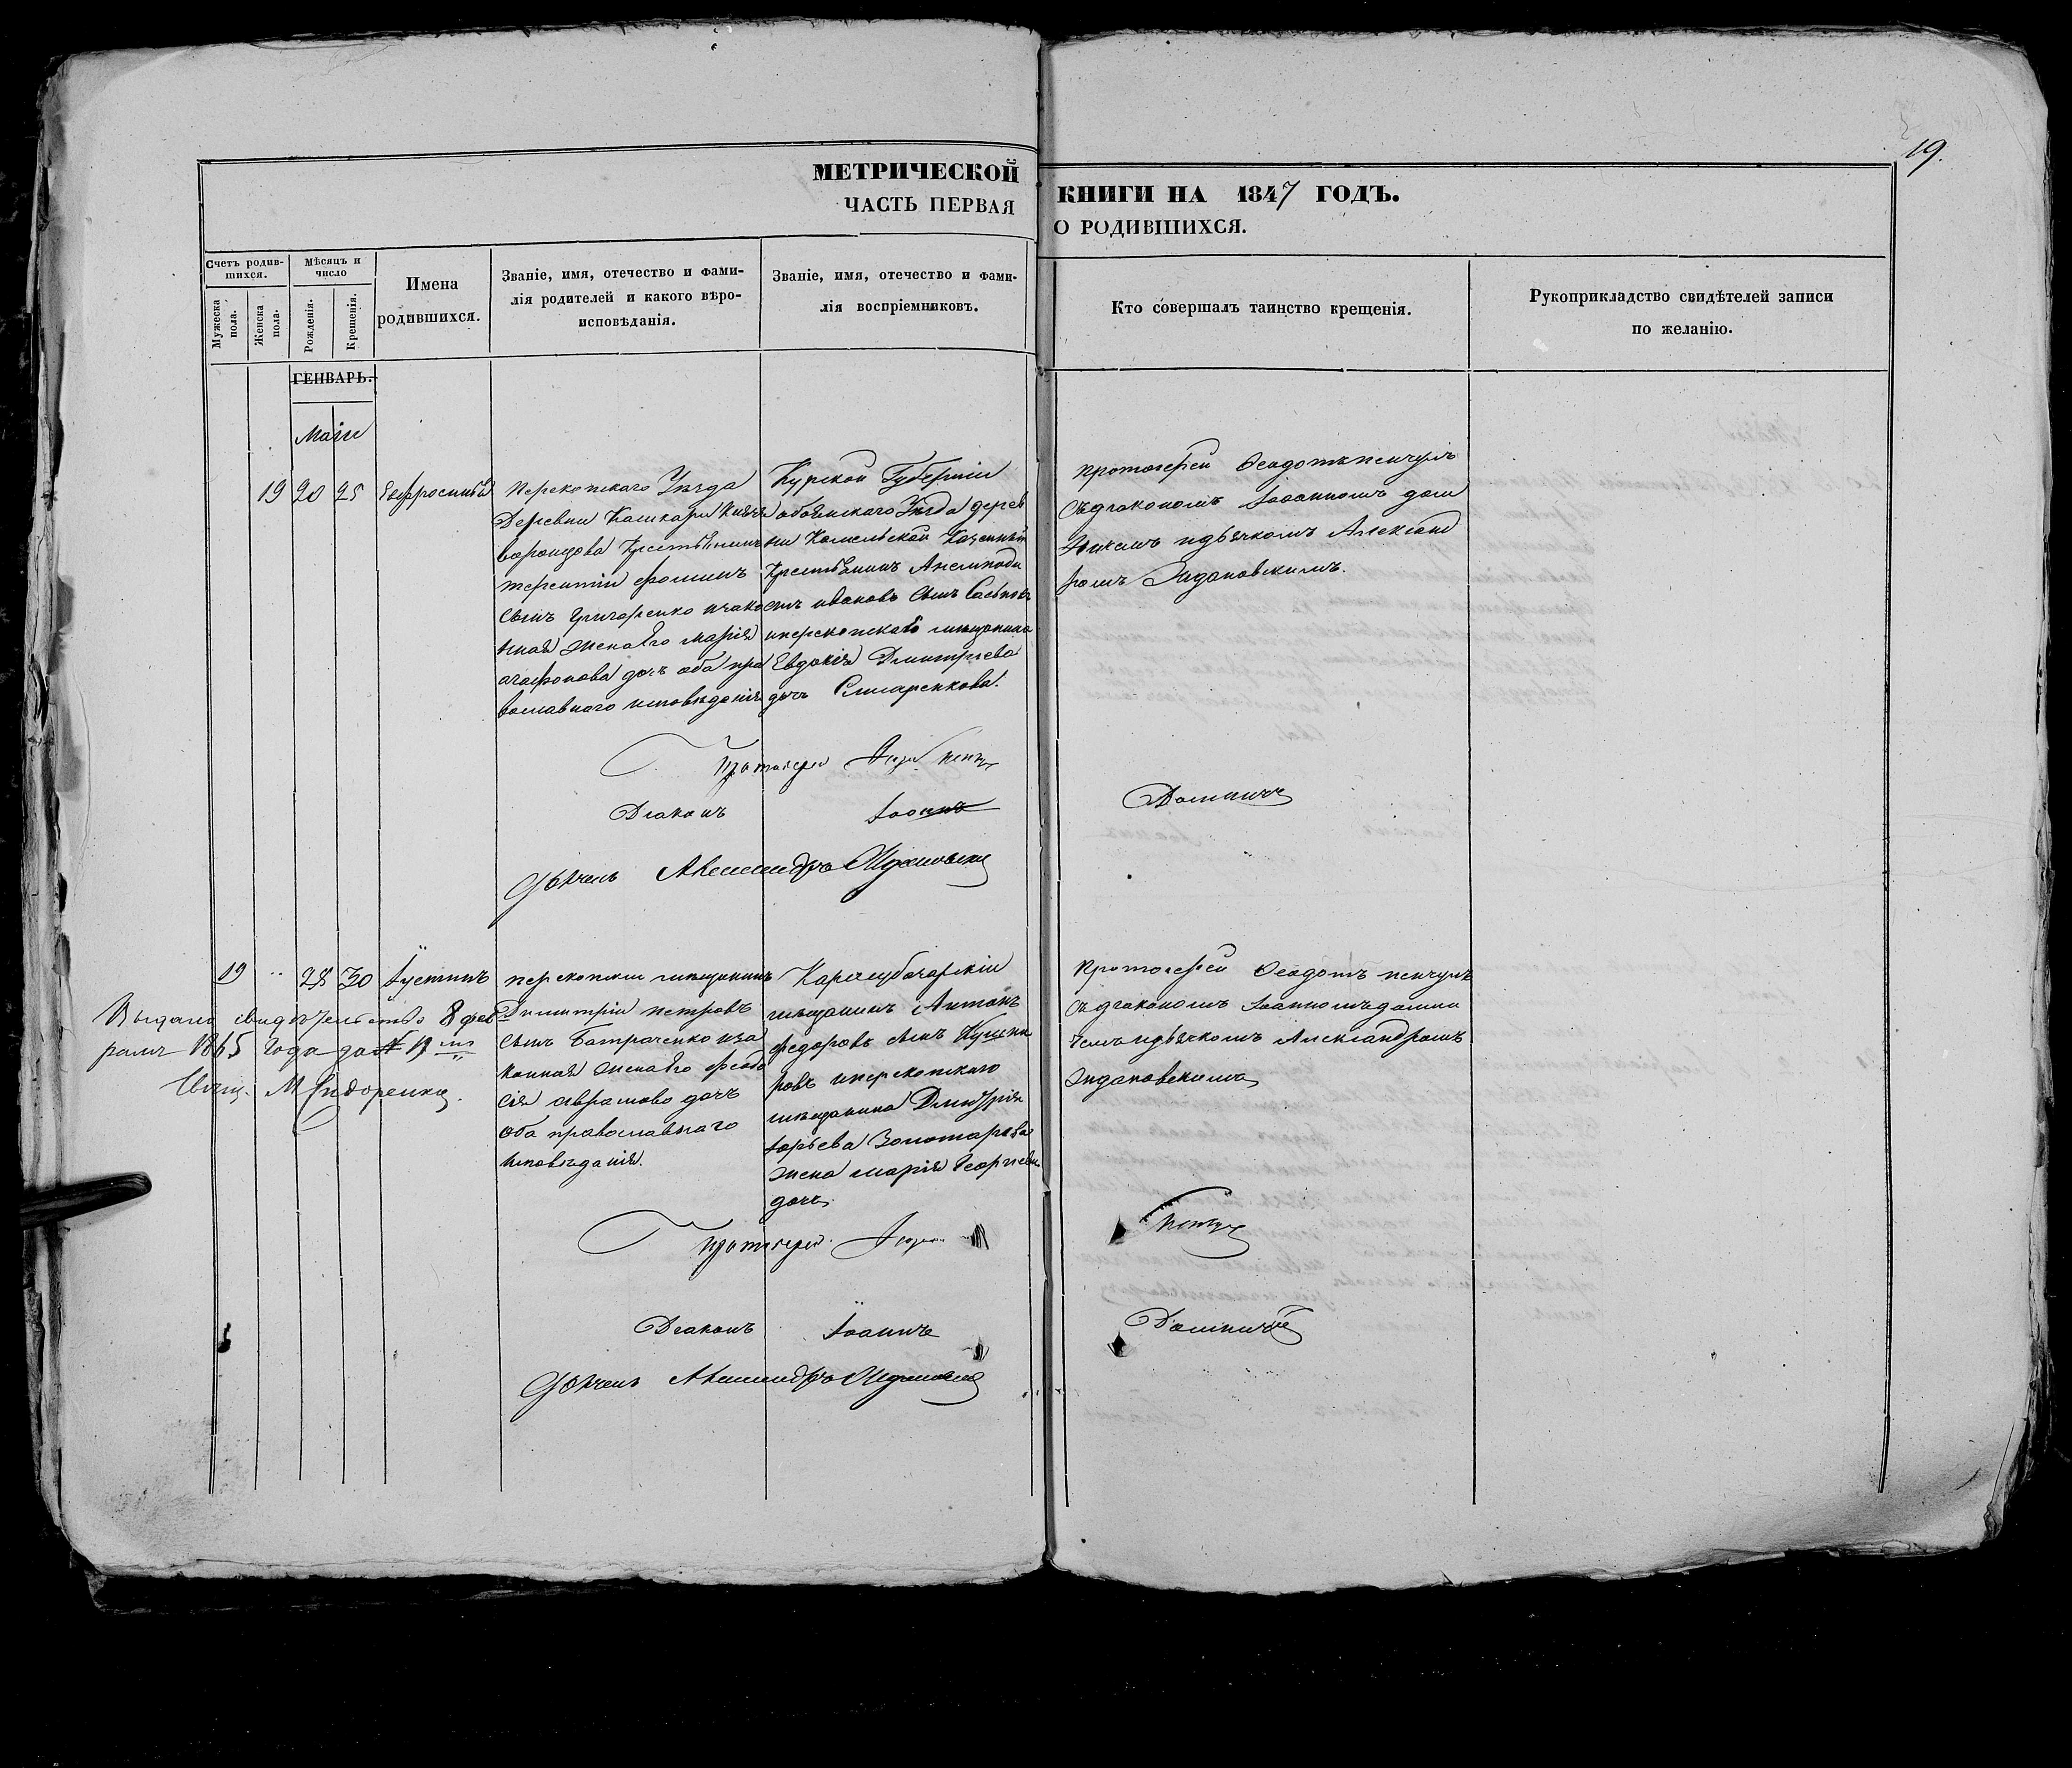 19.
МЕТРИЧЕСКОЙ КНИГИ НА 1847 ГОДЪ.
ЧАСТЬ ПЕРВАЯ О РОДИВШИХСЯ.
Счетъ родив-
шихся.
Мужеска
пола.
Женска
пола.
Мѣсяцъ и
число
Рожденія.
Крещенія.
Имена
родившихся.
Званіе, имя, отечество и фами-
лія родителей и какого вѣро-
исповѣданія.
Званіе, имя, отечество и фами-
лія воспріемниковъ.
Кто совершалъ таинство крещенія.
Рукоприкладство свидѣтелей записи
по желанію.
ГЕНВАРЬ.
19 20 25 Евфросинія
Перекопскаго Уѣзда
Деревни Кашкары Князя
воронцова Крестьянинъ
терентій фоминъ
сынъ Григоренко изако
нная женаЕго марія
агафонова дочь оба пра
вославнаго исповѣданія
Курской Губерніи
обоянскаго Уѣзда дерев
ни Казенный
Крестьянинъ
ивановъ сынъ
иперекопскаго мѣщанина
Евдокія Дмитріева
дочь Слисаренкова.
протоіерей Феодотъ пенчулъ
съдіакономъ Іоанномъ доми
идьячкомъ Александ
ромъ Ждановскимъ.
Протоіерей
Діаконъ Іоаннъ
Дьячекъ Александръ Ждановскій
19 " 28 30 Іустинъ
перекопскій мѣщанинъ
Димитрій петровъ
сынъ Батраченко иза
конная женаЕго феодо
сія аврамова дочь
оба православнаго
исповѣданія.
Карасубазарскій
мѣщанинъ Антонъ
федоровъ сынъ
ровъ иперекопскаго
мѣщанина Дмитрія
юрьева Золотарева
жена марія Георгіева
дочь.
протоіерей Феодотъ пенчулъ
съдіакономъ Іоанномъдоми
идьячкомъ Александромъ
Ждановскимъ
Выдано свидѣтельство 8 фев
раля 1865 года за № 19
Свящ. М Сидоренко.
Протоіерей
Пенчулъ
Діаконъ Іоаннъ
Дьячекъ Александръ Ждановскій